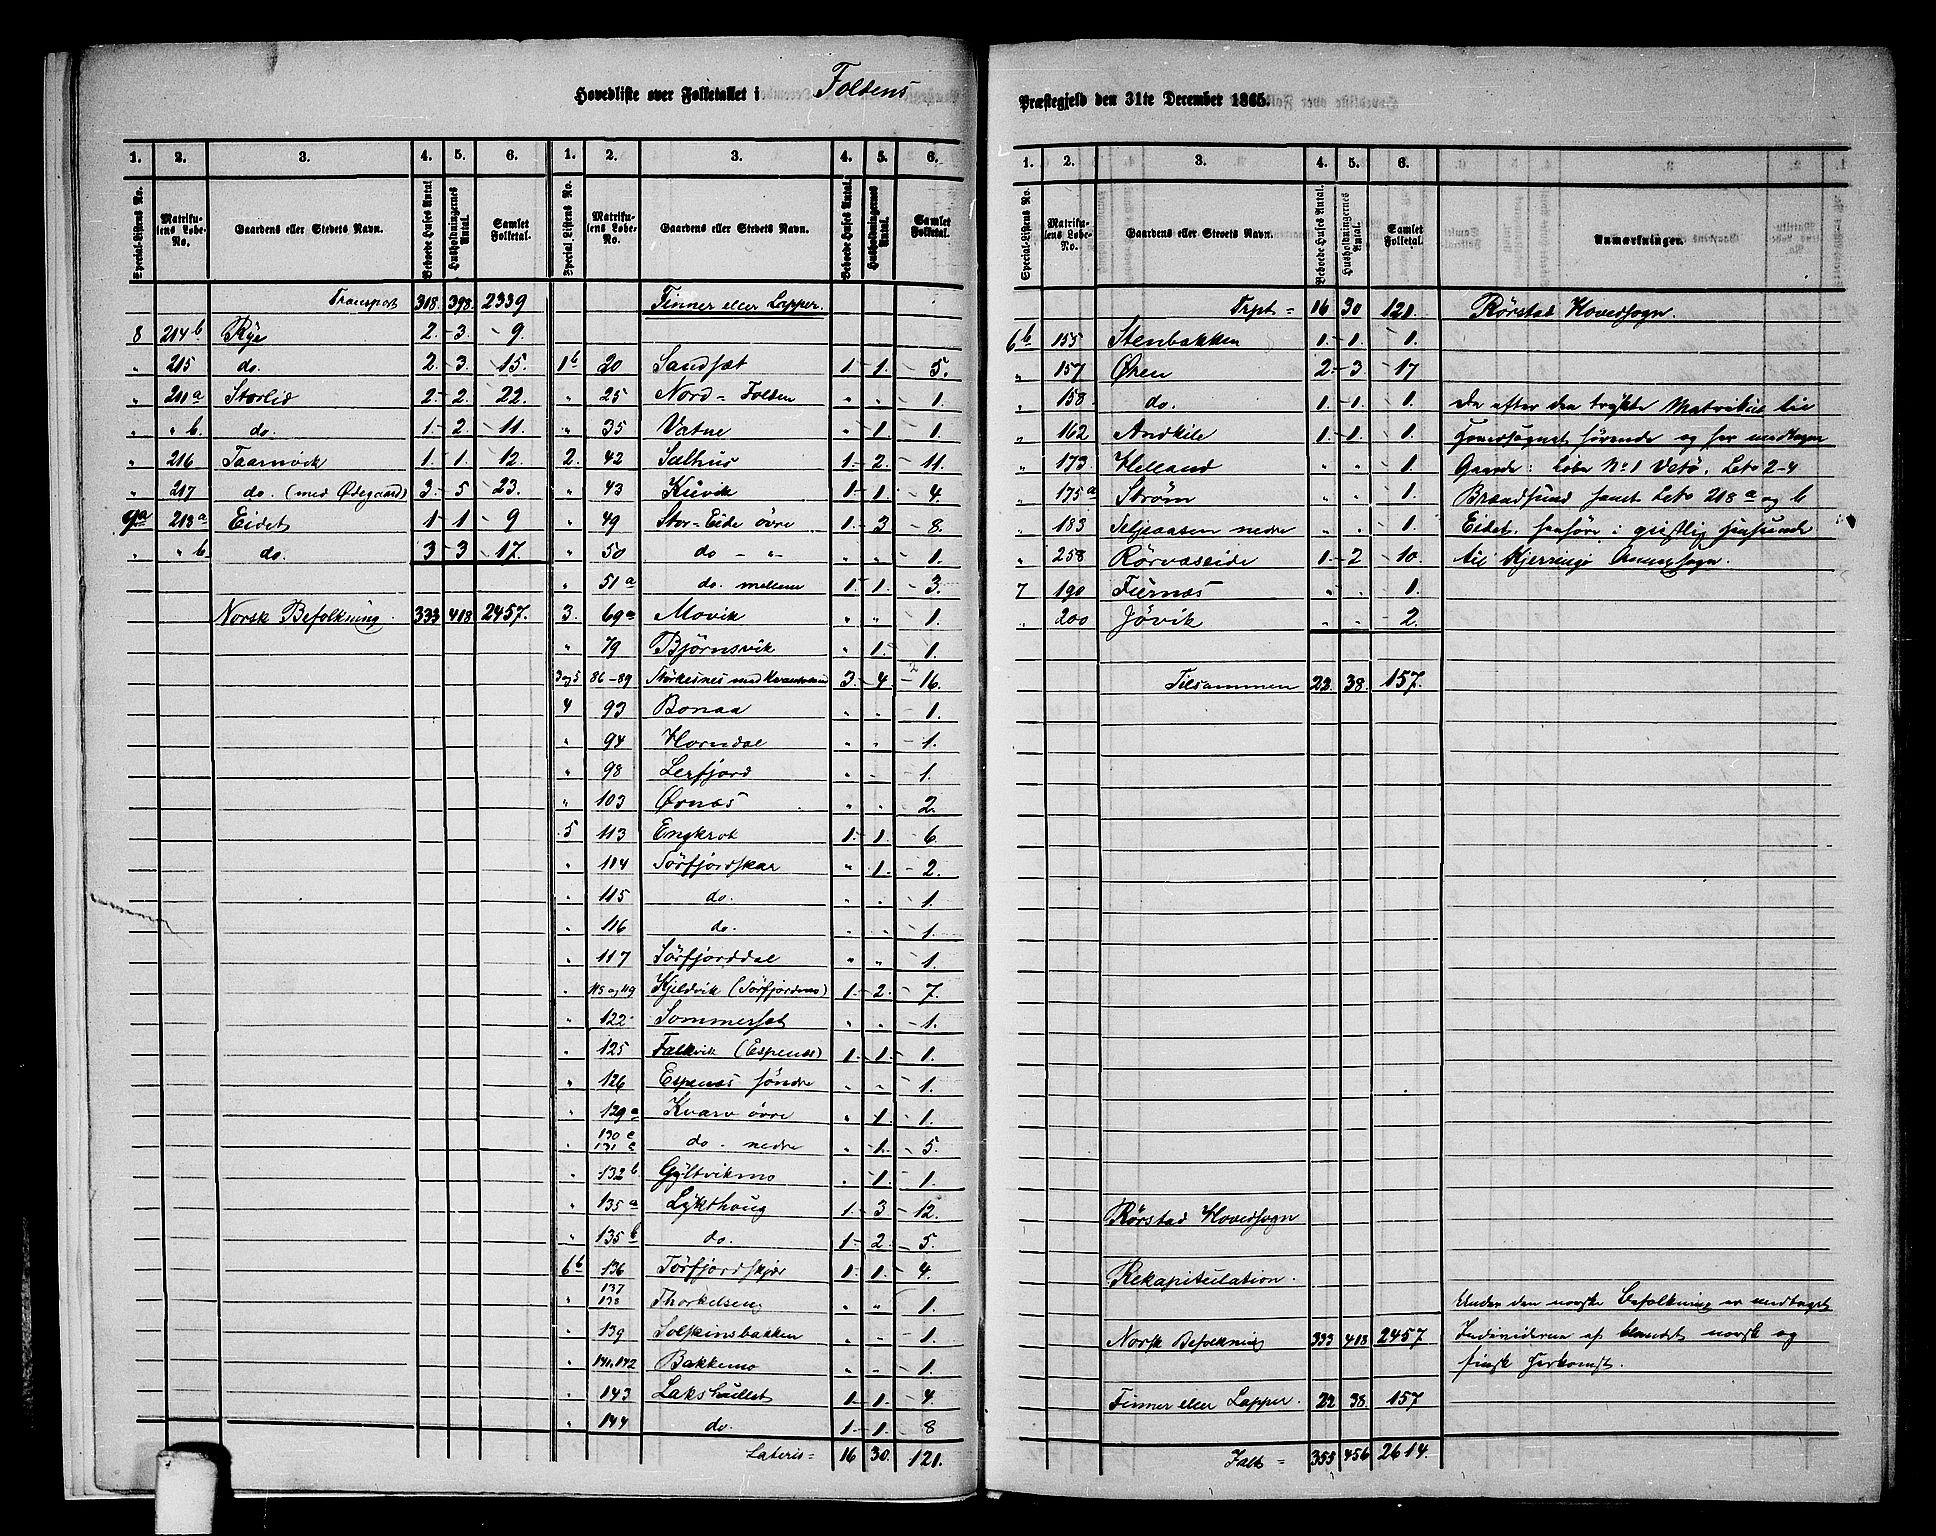 Hovedliste over Folketallet i Foldens Præstegjeld den 31te December 1865.
1. 2. 3. 4. 5. 6. 1. 2. 3. 4. 5. 6.
Special-Listens No. Matrikulens Løbe-No. Gaardens eller Stedets Navn. Beboede Huses Antal. Husholdningernes Antal. Samlet Folketal. Special Listens No. Matrikulens Løbe-No. Gaardens eller Stedets Navn. Beboede Huses Antal. Husholdningernes Antal. Samlet Folketal.
Transport 318. 398. 2339
8 214 b Røe 2 - 3 - 9.
" 215 do. 2 - 3 - 15.
" 211 a Storlid 2 - 2 - 22.
" " b. do. 1 - 2 - 11.
" 216 Taarnvik 1 - 1 - 12.
" 217 do. (med Ødegaard) 3 - 5 - 23.
9a 218 a Eidet 1 - 1 - 9
" " b do. 3 - 3 - 17.
Norsk Befolkning 333 418 2457.
Finner eller Lapper.
1 b 20 Sandsæt 1 - 1 - 5.
" 25 Nord-Folden " " 1.
" 35 Vatne " 1 - 1.
2. 42 Salhus 1 - 2 - 11.
" 43 Kilvik 1 - 1 - 4.
" 49 Stor-Eide øvre 1 - 3 - 8.
" 50 do - " - " " 1.
" 51 a do. mellem 1 - 1 - 3.
3. 69 a Movik " " 1.
" 79 Bjørnsvik " 1 - 1.
3 og 5 86-89 Størkesnes med 3 - 4 - 16.
4 93 Bonaa " " 1.
" 94 Horndal " " 1.
" 98 Lerfjord " " 1.
" 103 Ørnæs " " 2.
5 113 Engkrot 1 - 1 - 6
" 114 Sørfjordskar " 1 - 2.
" 115 do. " " 1.
" 116 do. " " 1.
" 117 Sørfjorddal " " 1.
" 118 og 119 Kjeldvik (Sørfjordmo) 1 - 2 - 7.
" 122 Sommerset " " 1.
" 125 Falkvik (Espenæs) 1 - 1 - 1.
" 126 Espenæs søndre " " 1.
" 129 a Kvarv øvre " 1 - 1.
" 130 c 131 c do. nedre " 1 - 5.
" 132 b Gyltvikmo 1 - 1.
" 135 a Lykthaug 1 - 3 - 12.
" 135 b do. 1 - 2 - 5.
6 b 136 Tørfjordskjær 1 - 1 - 4.
" 137 138 Thorkelseng " " 1.
" 139 Solskinsbakken " " 1.
" 141, 142 Bakkemo " " 1.
" 143 Lakshullet 1 - 1 - 4
" 144 do. 1 - 1 - 8
Lateris = 16 30. 121.
1. 2. 3. 4. 5. 6.
Special-Listens No. Matrikulens Løbe-No. Gaardens eller Stedets Navn. Beboede Huses Antal. Husholdningernes Antal. Samlet Folketal. Anmærkninger.
Trpt = 16 30 121. Rørstad Hovedsogn.
6 b 155 Stenbakken 1 - 1 - 1.
" 157 Øren 2 - 3 - 17
" 158 do. 1 - 1 - 1. Da efter den trykte Matrikul til
" 162 Andkile 1 - 1 - 1. Hovedsognet hørende og her medtagne
" 173 Helland " " 1. Gaarde: Løbe No 1 Vetø, Lebo 2-4
" 175 a Strøm " " 1. Brandsund samt Lebo 218 a og b
" 183 Seljeaasen nedre " " 1. Eidet, henhøre i geistlig Henseende
" 258 Rørvaseide 1 - 2 - 10. til Kjerringø Annexsogn.
7 190 Fiernæs " " 1.
" 200 Jøvik " " 2.
Tilsammen 22. 38. 157.
Rørstad Hovedsogn
Rekapitulation.
Norsk Befolkning 333 418 2457
Finner eller Lapper. 22 38. 157
Ialt = 355 456 2614.
Under den norske Befolkning er medtaget
Individerne af blandet norsk og
finsk Herkomst.